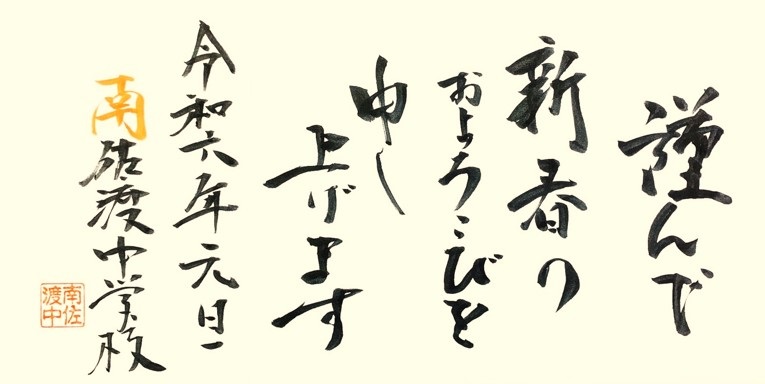 謹んで
新春の
およろこびを
申し
上げます
令和六年元日
南佐渡中学校
南佐
渡中